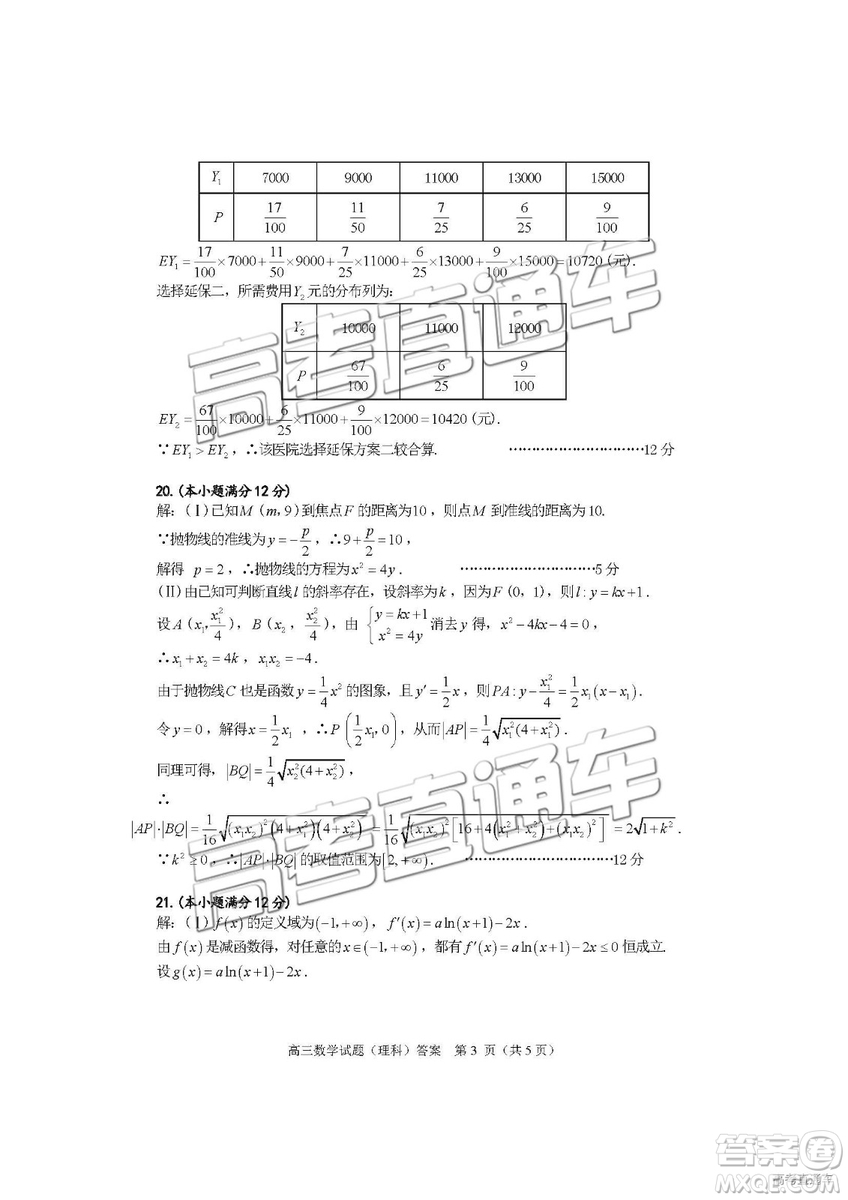 Y₁ 7000 9000 11000 13000 15000
P 17/100 11/50 7/25 6/25 9/100
EY₁=17/100×7000+11/50×9000+7/25×11000+6/25×13000+9/100×15000=10720 (元).
选择延保二，所需费用Y₂元的分布列为:
Y₂ 10000 11000 12000
P 67/100 6/25 9/100
EY₂=67/100×10000+6/25×11000+9/100×12000=10420 (元).
∵EY₁>EY₂，∴该医院选择延保方案二较合算. …………………………12 分
20. (本小题满分 12 分)
解：(Ⅰ)已知M (m, 9) 到焦点F 的距离为10，则点M 到准线的距离为 10.
∵抛物线的准线为y=-p/2，∴9+p/2=10，
解得 p=2，∴抛物线的方程为x²=4y. …………………………5 分
(Ⅱ) 由已知可判断直线l 的斜率存在，设斜率为k，因为F (0, 1)，则l:y=kx+1.
设A (x₁,x₁²/4)，B (x₂，x₂²/4)，由 {y=kx+1 x²=4y 消去y 得，x²-4kx-4=0，
∴x₁+x₂=4k，x₁x₂=-4.
由于抛物线C 也是函数y=1/4x²的图象，且y′=1/2x，则PA:y-x₁²/4=1/2x₁(x-x₁).
令y=0，解得x=1/2x₁，∴P (1/2x₁,0)，从而|AP|=1/4√x₁²(4+x₁²).
同理可得，|BQ|=1/4√x₂²(4+x₂²)，
∴
|AP|·|BQ|=1/16√(x₁x₂)²(4+x₁²)(4+x₂²)=1/16√(x₁x₂)²[16+4(x₁²+x₂²)+(x₁x₂)²]=2√1+k².
∵k²≥0，∴|AP|·|BQ|的取值范围为[2,+∞). …………………………12 分
21. (本小题满分 12 分)
解：(Ⅰ) f(x)的定义域为(-1,+∞)，f′(x)=aln(x+1)-2x.
由f(x)是减函数得，对任意的x∈(-1,+∞)，都有f′(x)=aln(x+1)-2x≤0恒成立.
设g(x)=aln(x+1)-2x.
高三数学试题（理科）答案 第 3 页（共 5 页）
高考直通车
高考直通车
答案圈
MXQE.COM